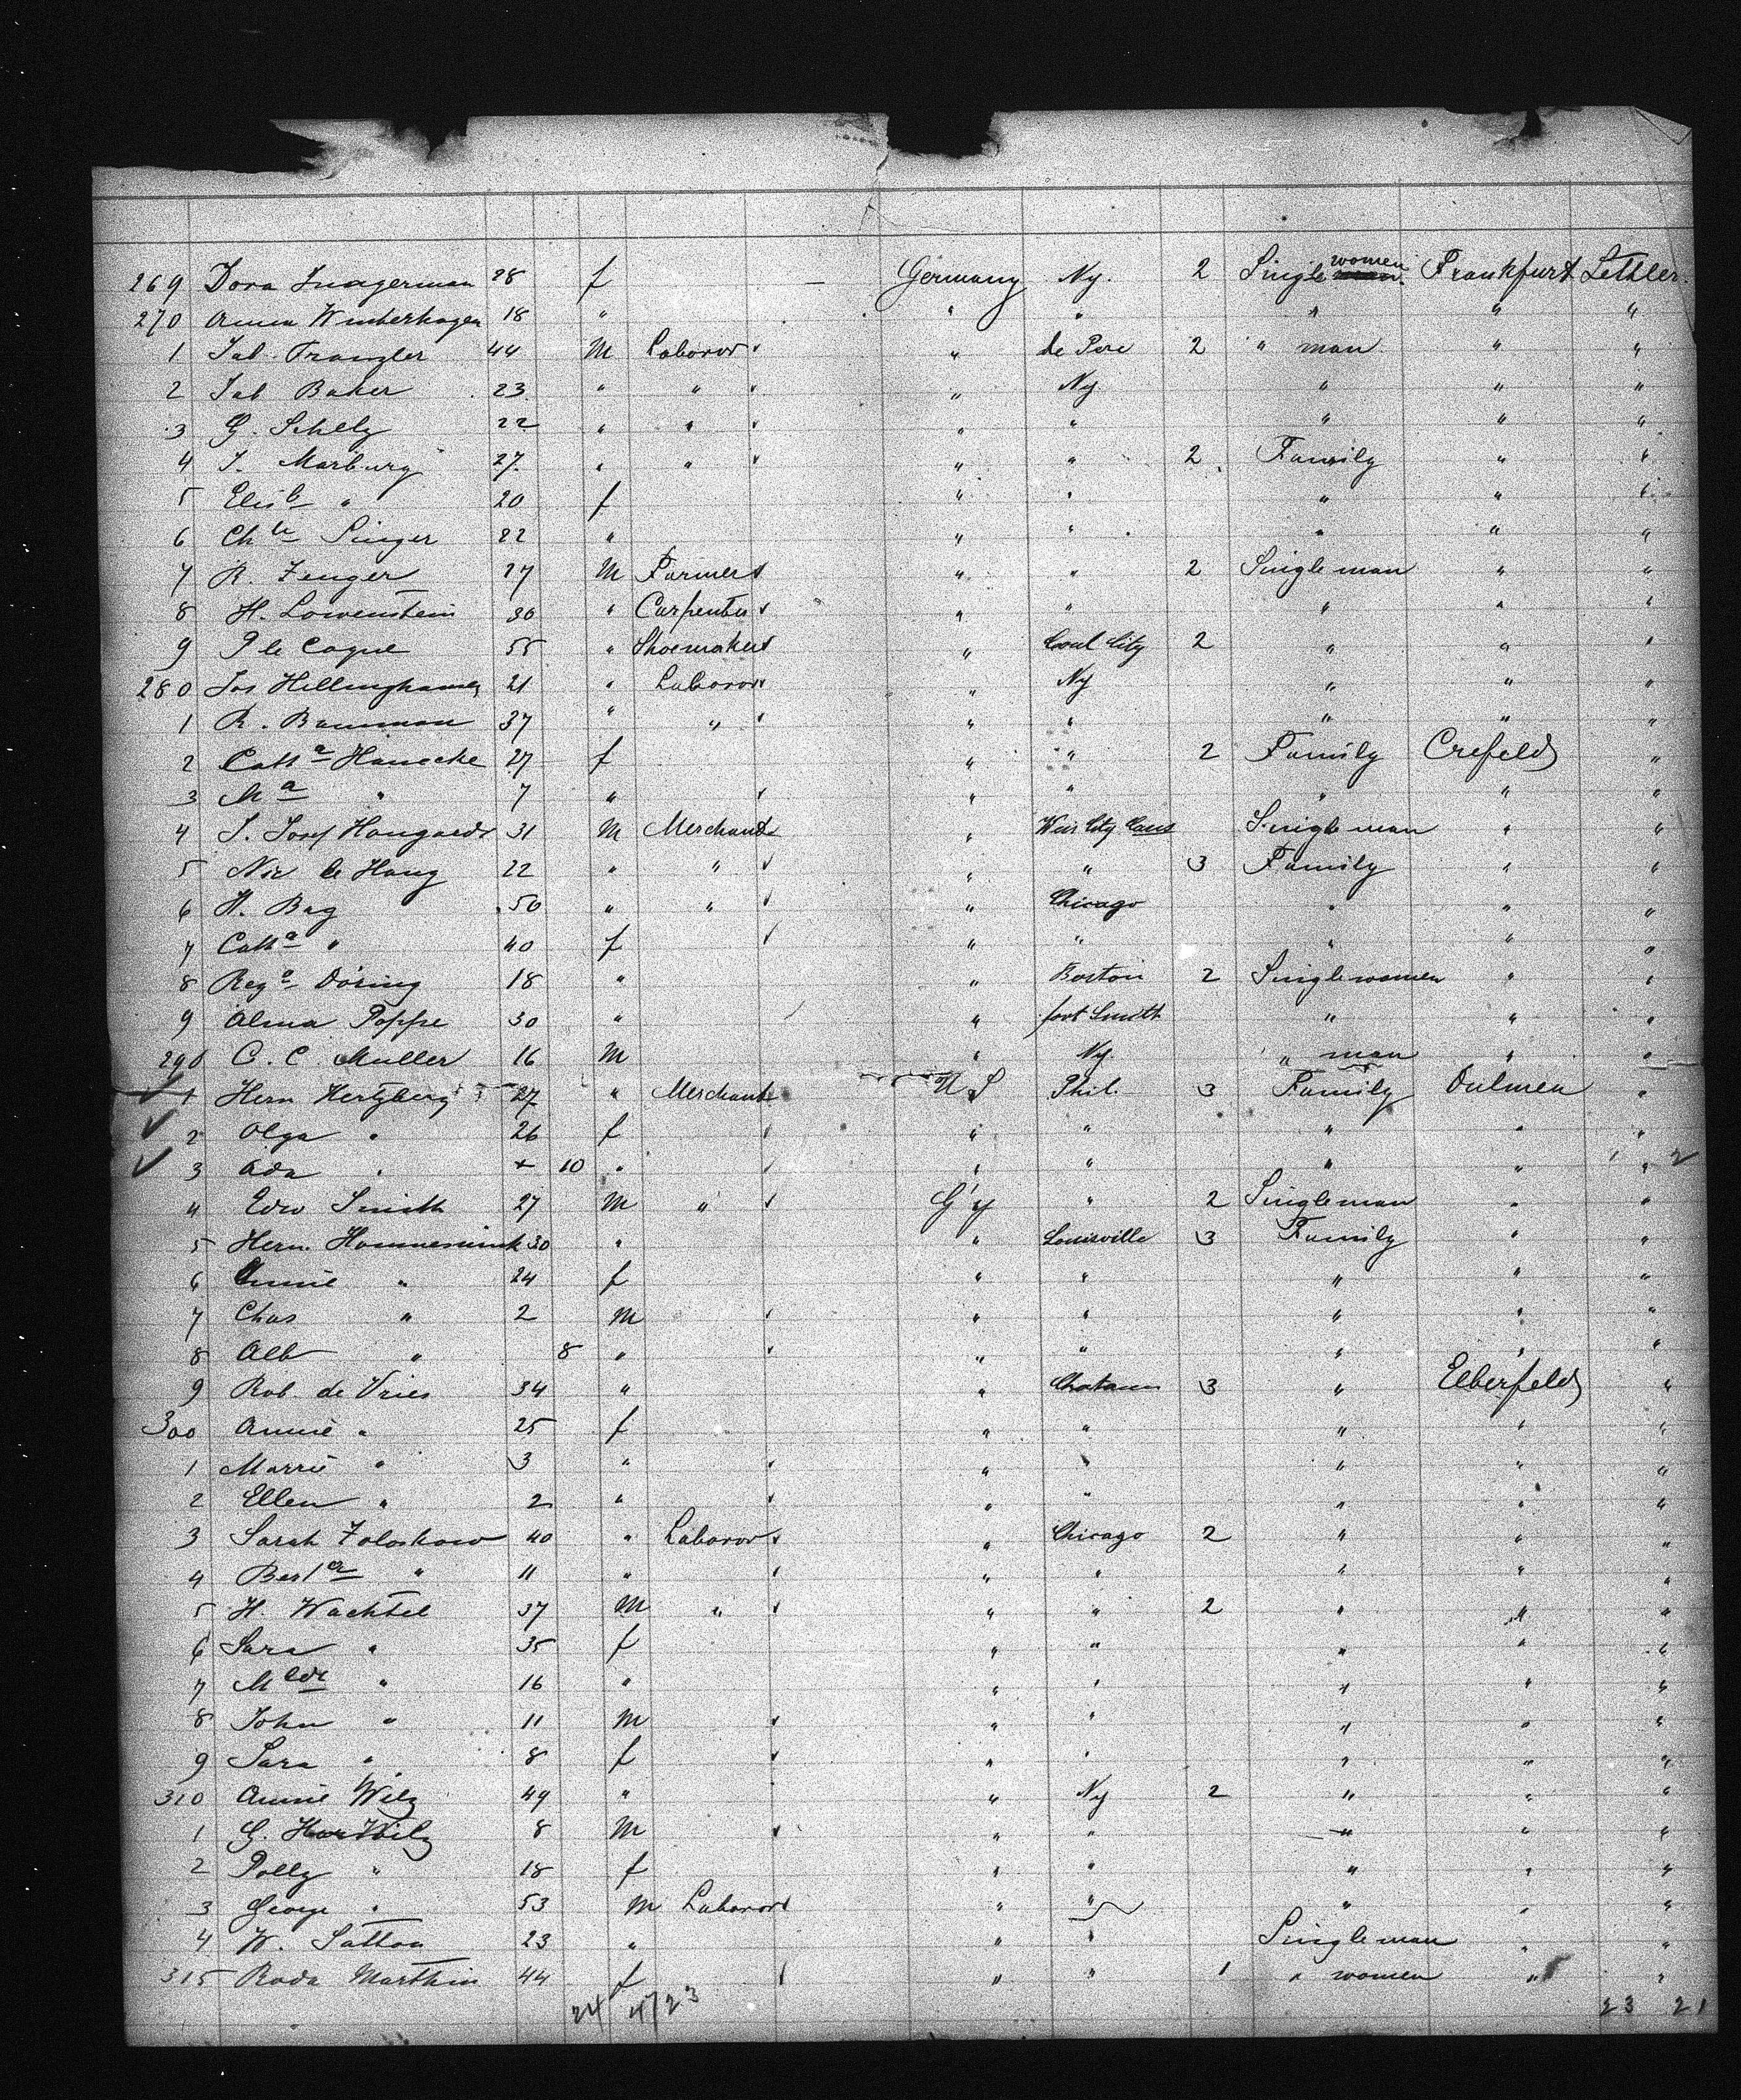 269 Dora Inagerman 28 f Germany Ny. 2 Single women Frankfurt Settler.
270 Anna Winterhagen 18 " " " " " "
1 Jab. Franzler 44 M Laborer " de Pere 2 " man " "
2 Jab Baker 23 " " " Ny " " "
3 G. Schelz 22 " " " " " " "
4 J. Marburg 27 " " " " 2 Family " "
5 Elisb " 20 f " " " " "
6 Chte Singer 22 " " " " " "
7 R. Zenger 27 M Farmer " " 2 Single man " "
8 H. Lowenstein 30 " Carpenter " " " " "
9 P le Coque 55 " Shoemaker " Coal City 2 " " "
280 Jos Hellinghaus 21 " Laborer " Ny " " "
1 R. Bauman 37 " " " " " " "
2 Catha Hanecke 27 f " " 2 Family Crefeld "
3 Ma " 7 " " " " " "
4 J. Josef Hougardt 31 M Merchant " Weir City Cans Single man " "
5 Nic le Hang 22 " " " " 3 Family " "
6 H. Bag 50 " " " Chicago " " "
7 Catha " 40 f " " " " "
8 Rega Döring 18 " " Boston 2 Single women " "
9 Alma Poppe 30 " " fort Smith " " "
290 C. C. Muller 16 M " Ny. " man " "
1 Hern Hertzberg 27 " Merchant U S Phil. 3 Family Dulmen "
2 Olga " 26 f " " " " "
3 Ada " + 10 " " " " " " 2
4 Edw Smith 27 M " G'y " 2 Single man " "
5 Hern. Hammesnick 30 " " Louisville 3 Family " "
6 Annie " 24 f " " " " "
7 Chas " 2 M " " " " "
8 Alb " 8 " " " " " "
9 Rob. de Vries 34 " " 3 " Elberfeld "
300 Annie " 25 f " " " " "
1 Marrie " 3 " " " " " "
2 Ellen " 2 " " " " " "
3 Sarah Zoloskow 40 " Laborer " Chicago 2 " " "
4 Berta " 11 " " " " " "
5 H. Wachtel 37 M " " " 2 " " "
6 Sara " 35 f " " " " "
7 " 16 " " " " " "
8 John " 11 M " " " " "
9 Sara " 8 f " " " " "
310 Annie Wilz 49 " " Ny 2 " " "
1 G. Wilz 8 M " " " " "
2 Polly " 18 f " " " " "
3 George " 53 M Laborer " " " " "
4 W. Sattou 23 " " " Single man " "
315 Roda Marthin 44 f " " 1 " women " "
24 4/23 23 21